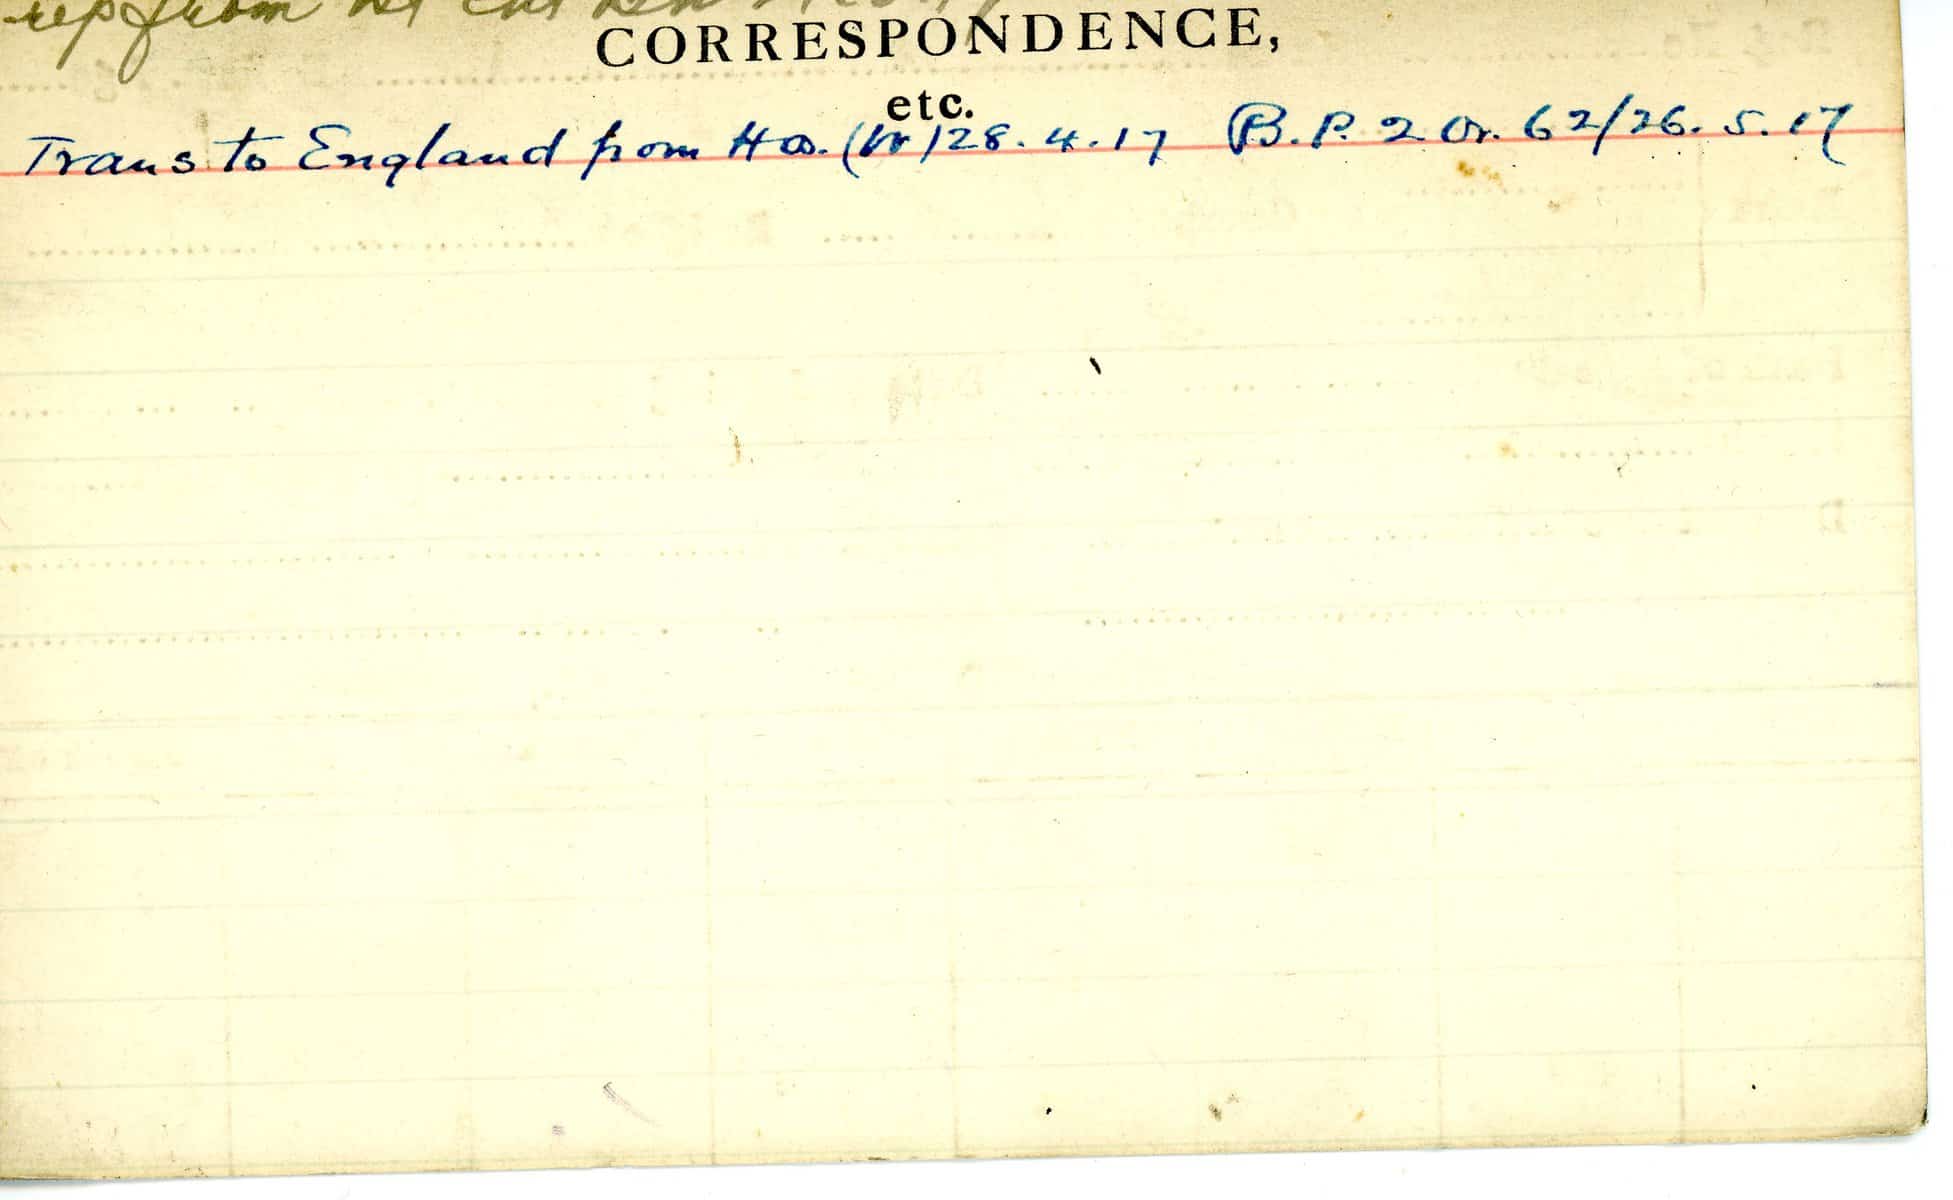 rep from
CORRESPONDENCE,
etc.
Trans to England from Hq. (W) 28.4.17 B.P. 2 Or. 62/26.5.17